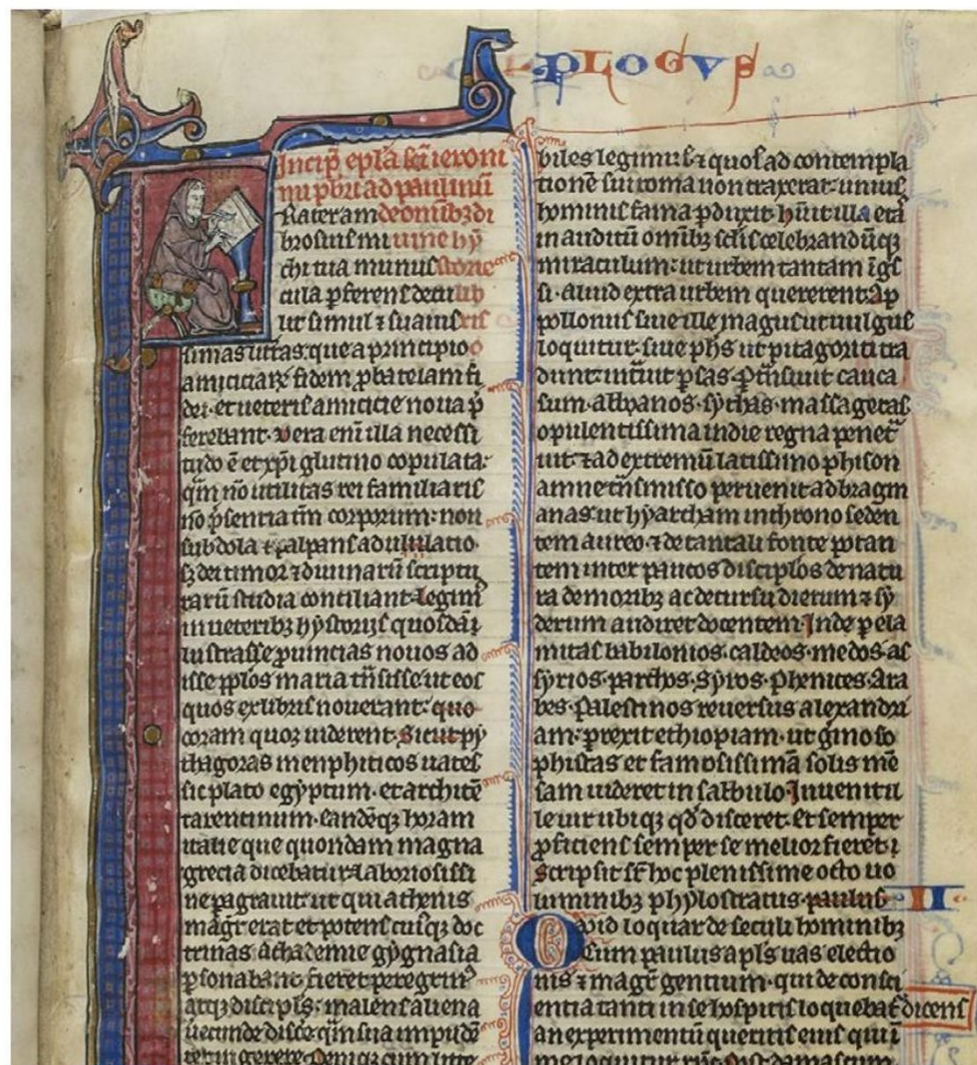 PLOGVS
Incip̄ epl̄a sc̄i ieroni
mi pb̄ri ad paulinū
Rater am de omībꝫ di
brosius mi uine hẏ
chi tua munus storie
cula p̱ferens detu lib
lit simul ⁊ suauis ris
simas litt̄as. que a principio o
amiciciaꝝ fidem ꝓbate iam fi
dei. et ueteris amicicie noua p̄
ferebant. Vera eni illa necessi
tudo ē et xp̄i glutino copulata.
qm̄ nō utilitas rei familiaris
nō p̄sentia tm̄ corporum. non
subdola ⁊ palpans adulatio.
sꝫ dei timor ⁊ diuinarū scriptu
rarū studia conciliant. Legim᷒
in ueteribꝫ hẏstorijs quosdā
lustrasse ꝓuincias nouos ad
isse pplōs maria tn̄sisse ut eos
quos ex libris nouerant. quo
coram quoꝫ uiderent. Sicut pẏ
thagoras menphiticos uates
sic plato egẏptum. et architē
tarentinum. eandēqꝫ horam
italie que quondam magna
grecia dicebatur. laboriosissi
ne ꝑagrauit. ut qui athenis
mag̅r erat et potens cuiꝯqꝫ doc
trinas achademie gẏgnasia
ꝑsonabant. fieret peregrin᷒
atqꝫ discipl̄s. malens aliena
uecunde discē qm̄ sua impudē
ter ingerere. Deniqꝫ cum litte
biles legimus ⁊ quos ad contempla
tionē sui roma non traxerat. unius
hominis fama ꝑduxit. hūit illa etā
inauditū omībꝫ sc̄lis celebrandūqꝫ
miraculum. ut urbem tantam īgs̄
si. aliud extra urbem quererent. Ap
pollonius siue ille magus ut uulgus
loquitur. siue ph̄s ut pitagorici tra
dunt. int̄uit ꝑsas. ꝑtn̄siuit cauca
sum. albanos. sẏthas. massagetas.
opulentissima indie regna penet̄
uit. ⁊ ad extremū latissimo phison
amne tn̄smisso peruenit ad bragm
anas. ut hẏarcham in throno seden
tem aureo. ⁊ de tantali fonte potan
tem inter paucos disciplos de natu
ra de moribꝫ ac de cursu dierum ⁊ sẏ
derum audiret docentem. Inde p̱ ela
mitas. babilonios. caldeos. medos. as
sẏrios. parthos. Sẏros. Phenices. Ara
bes. Palestinos reuersus alexandri
am. ꝑrexit ethiopiam. ut ginoso
phistas et famosissimā solis mē
sam uideret in sabbulo. Inuenit il
le uir ubiqꝫ qd̄ disceret. Et semper
ꝓficiens semper se melior fieret.
Scripsit sr̄ hoc plenissime octo uo
luminibꝫ phẏlostratus. paulus
II
Quid loquar de seculi hominibꝫ
Cum paulus apl̄s uas electio
nis ⁊ mag̅r gentium. qui de consci
entia tanti in se hospitis loquebat᷑ dicens
an experimentū queritis eius qui ī
me loquitur xp̄c. Post damascum